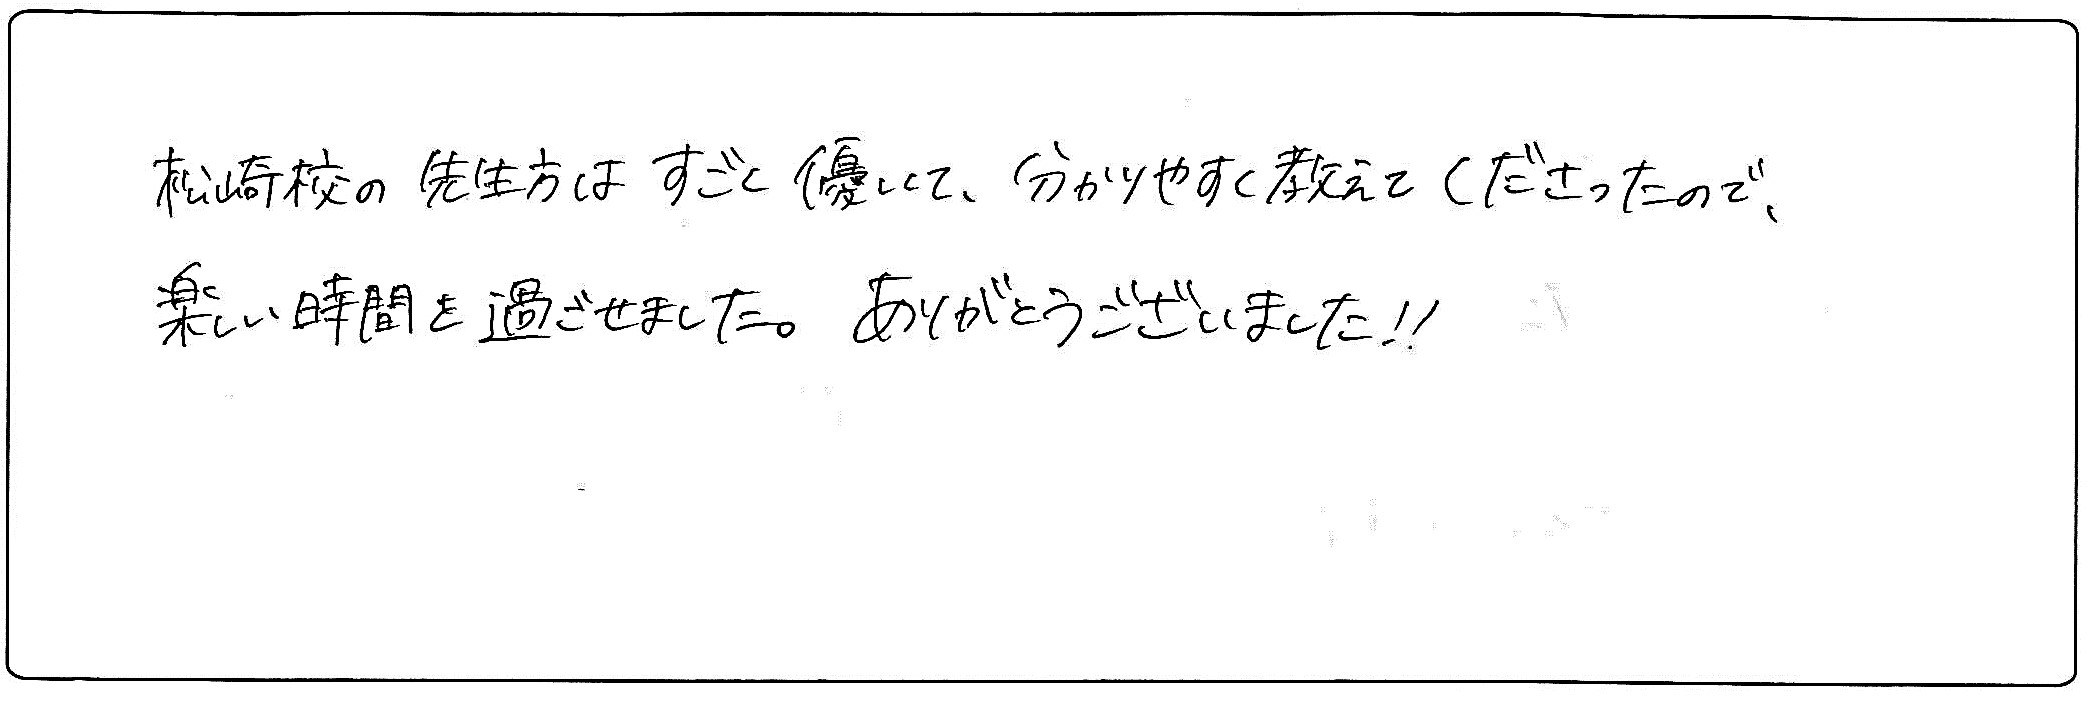 松崎校の先生方はすごく優しくて、分かりやすく教えてくださったので、
楽しい時間を過ごせました。ありがとうございました!!